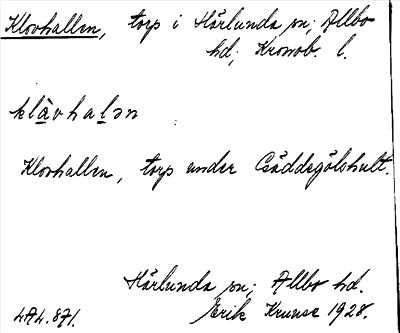 Klovhallen, torp i Härlunda sn; Allbo
hd; Kronob. l.
klåvhalən
Klovhallen, torp under Gäddegölshult.
Härlunda sn; Allbo hd.
Erik Kruuse 1928.